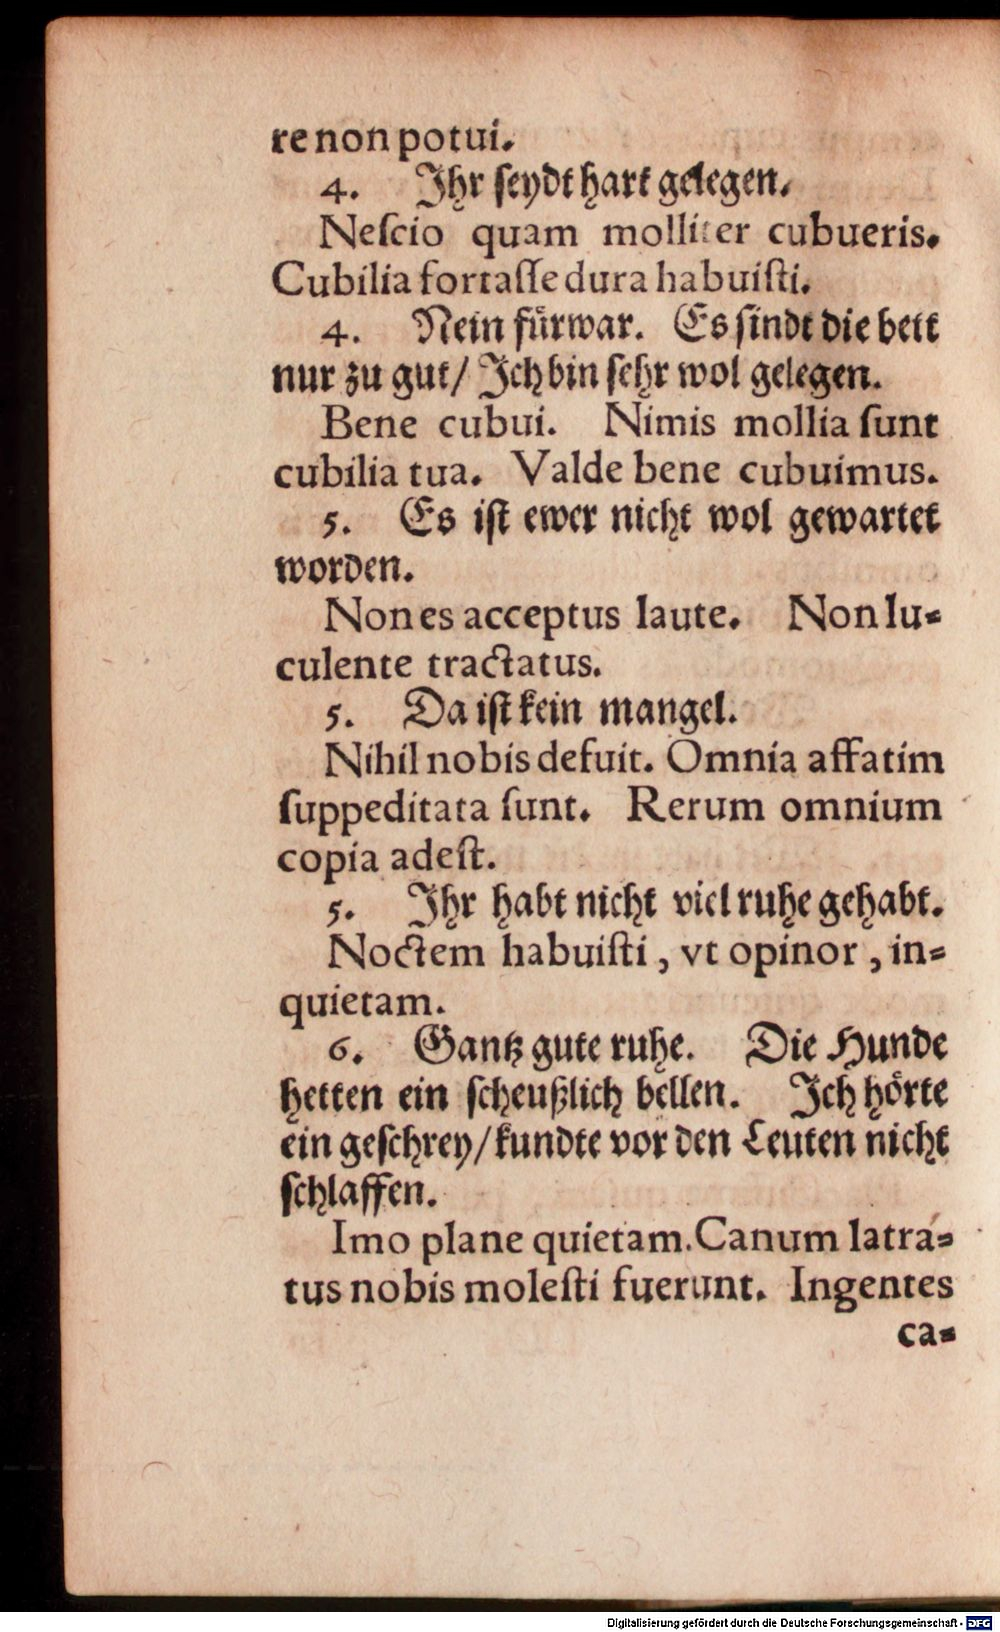 re non potui.
4. Ihr seydt hart gelegen.
Neſcio quam molliter cubueris.
Cubilia fortaſſe dura habuiſti.
4. Nein fuͤrwar. Es ſindt die bett
nur zu gut/ Ich bin ſehr wol gelegen.
Bene cubui. Nimis mollia ſunt
cubilia tua. Valde bene cubuimus.
5. Es iſt ewer nicht wol gewartet
worden.
Non es acceptus laute. Non lu⸗
culente tractatus.
5. Da iſt kein mangel.
Nihil nobis defuit. Omnia affatim
ſuppeditata ſunt. Rerum omnium
copia adeſt.
5. Ihr habt nicht viel ruhe gehabt.
Noctem habuiſti, vt opinor, in⸗
quietam.
6. Gantz gute ruhe. Die Hunde
hetten ein ſcheußlich bellen. Ich hoͤrte
ein geſchrey/ kundte vor den Leuten nicht
ſchlaffen.
Imo plane quietam. Canum latra⸗
tus nobis moleſti fuerunt. Ingentes
ca⸗
Digitalisierung gefördert durch die Deutsche Forschungsgemeinschaft - DFG